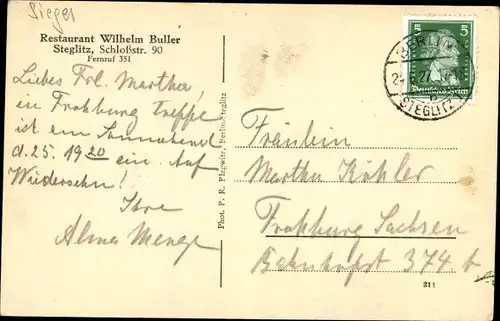 Sieger
Restaurant Wilhelm Buller
Steglitz, Schloßstr. 90
Fernruf 351
Liebes Frl. Martha!
in Frohburg treffe
ich am Sonnabend
d. 25. 19 20 ein. Auf
Wiedersehn!
Ihre
Alma Menge
Phot. P. R. Plagwitz, Berlin-Steglitz
5 5
Deutsches Reich
BERLIN
27
STEGLITZ
Fräulein
Martha Köhler
Frohburg Sachsen
Bahnhofst 374 b
311